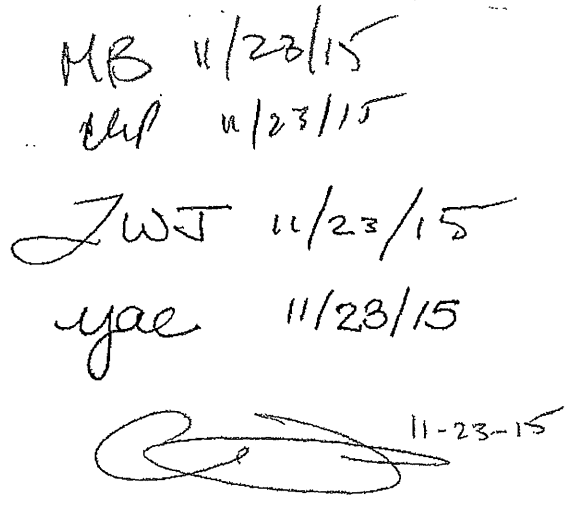 MB 11/23/15
11/23/15
JWJ 11/23/15
yae 11/23/15
11-23-15